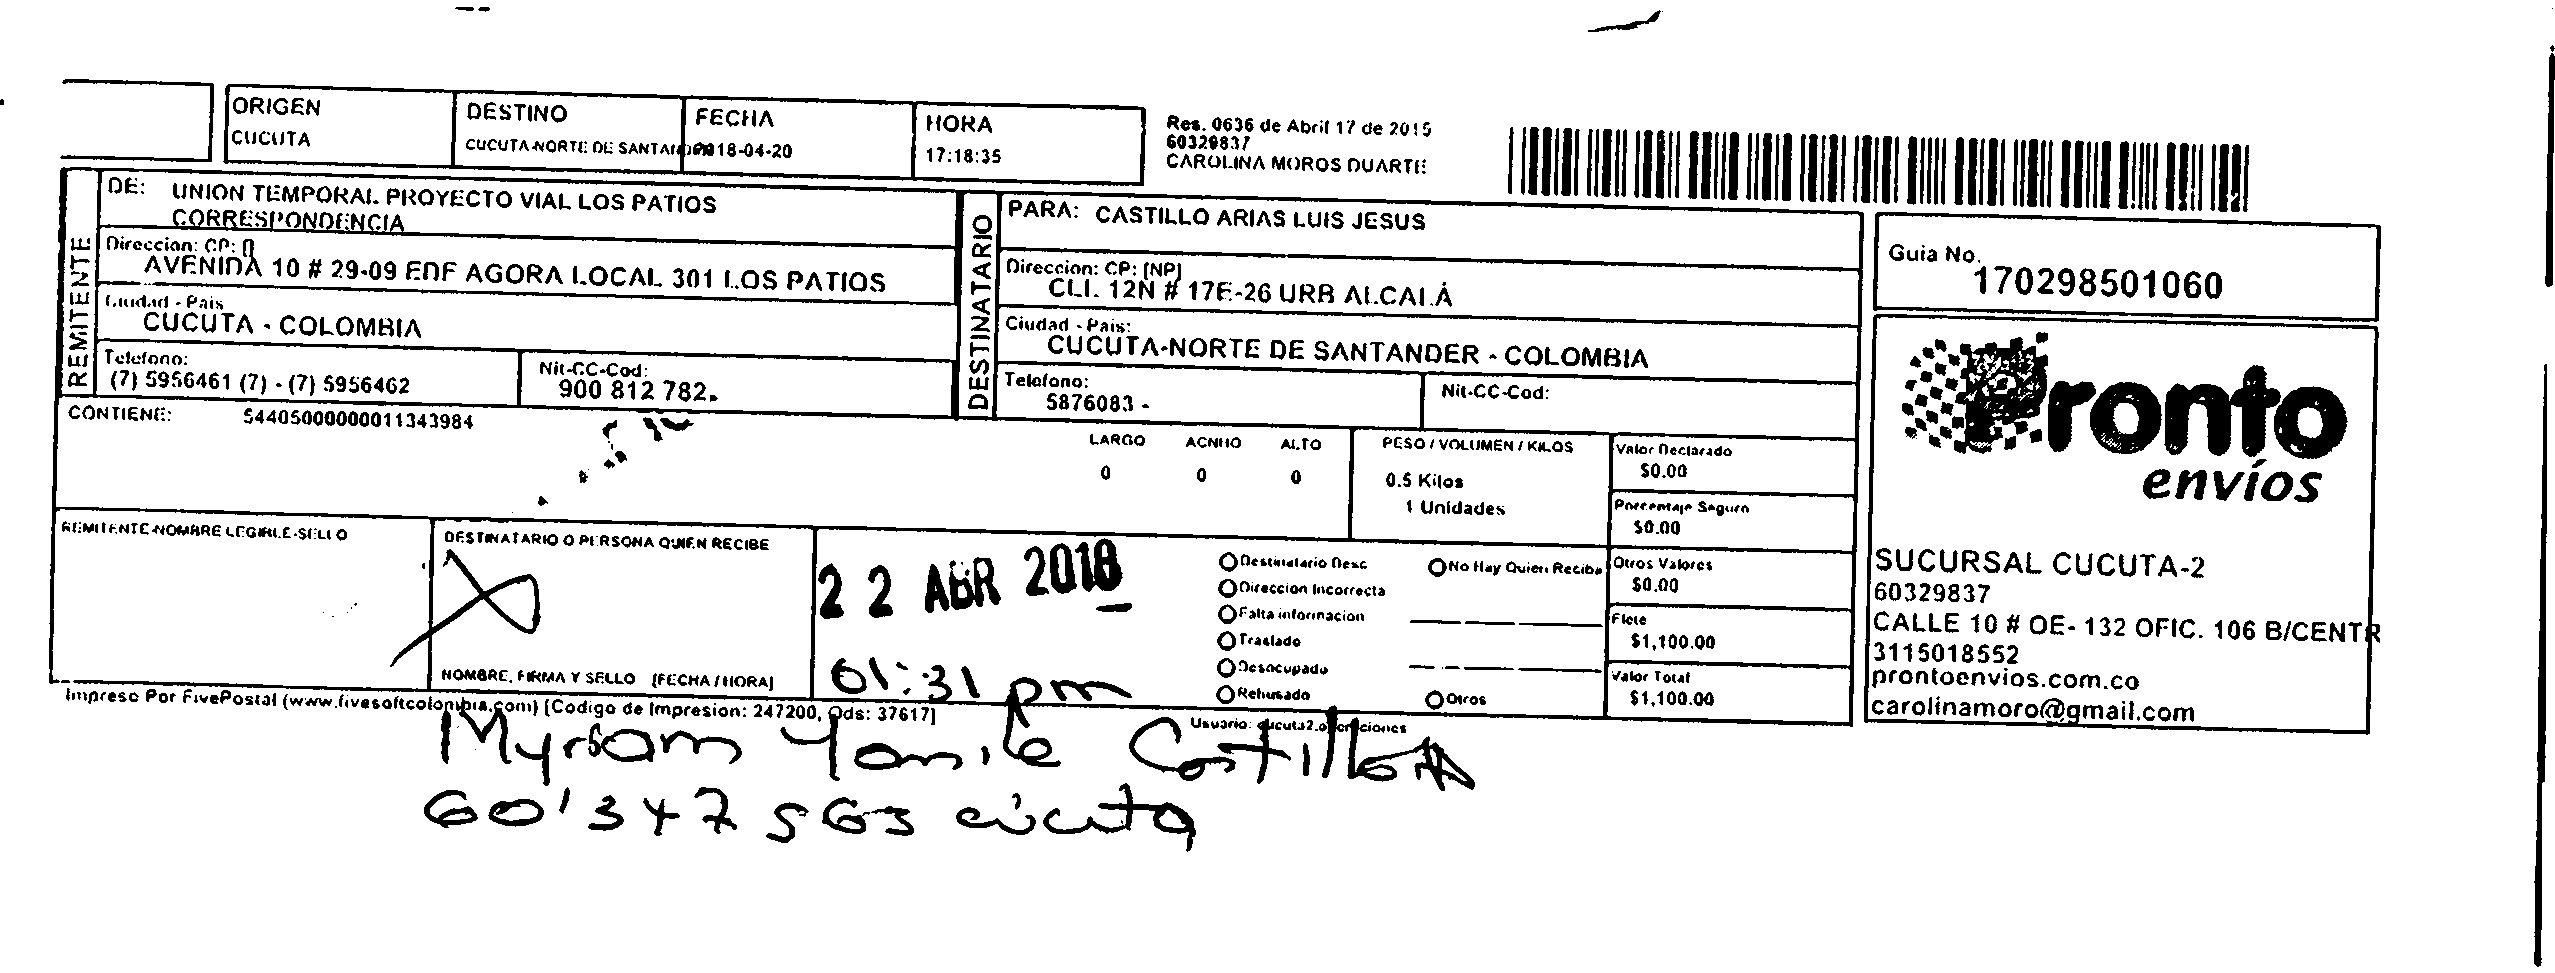 ORIGEN
CUCUTA
DESTINO
CUCUTA-NORTE DE SANTAN
FECHA
2018-04-20
HORA
17:18:35
Res. 0636 de Abril 17 de 2015
60329837
CAROLINA MOROS DUARTE
REMITENTE
DE: UNION TEMPORAL PROYECTO VIAL LOS PATIOS
CORRESPONDENCIA
Direccion: CP: []
AVENIDA 10 # 29-09 EDF AGORA LOCAL 301 LOS PATIOS
Ciudad - Pais
CUCUTA - COLOMBIA
Telefono:
(7) 5956461 (7) - (7) 5956462
Nit-CC-Cod:
900 812 782.
DESTINATARIO
PARA: CASTILLO ARIAS LUIS JESUS
Direccion: CP: [NP]
CLL 12N # 17E-26 URB ALCALÁ
Ciudad - Pais:
CUCUTA-NORTE DE SANTANDER - COLOMBIA
Telefono:
5876083 -
Nit-CC-Cod:
Guia No.
170298501060
Pronto
envíos
SUCURSAL CUCUTA-2
60329837
CALLE 10 # OE- 132 OFIC. 106 B/CENTR
3115018552
prontoenvios.com.co
carolinamoro@gmail.com
CONTIENE: 54405000000011343984
LARGO ACNHO ALTO
0 0 0
PESO / VOLUMEN / KILOS
0.5 Kilos
1 Unidades
Valor Declarado
$0.00
Porcentaje Seguro
$0.00
Otros Valores
$0.00
Flete
$1,100.00
Valor Total
$1,100.00
REMITENTE-NOMBRE LEGIBLE-SELLO
DESTINATARIO O PERSONA QUIEN RECIBE
NOMBRE, FIRMA Y SELLO [FECHA / HORA]
22 ABR 2018
01:31 pm
Destinatario Desc
Direccion Incorrecta
Falta informacion
Traslado
Desocupado
Rehusado
No Hay Quien Reciba
Otros
Impreso Por FivePostal (www.fivesoftcolombia.com) [Codigo de Impresion: 247200, Ods: 37617]
Usuario: cucuta2.operaciones
Myriam Yamile Castillo A
60'347563 cúcuta